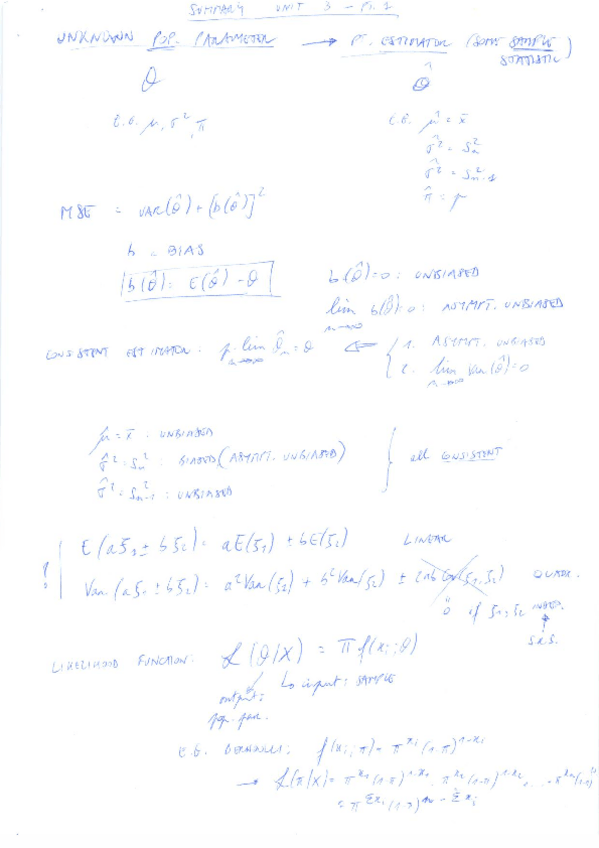 SUMMARY UNIT 3 - Pt. 1
UNKNOWN POP. PARAMETER → P. ESTIMATOR (SOME SAMPLE STATISTIC)
θ θ̂
E.G. μ, σ², π E.G. μ̂ = x̄
σ̂² = S²ₙ
σ̂² = S²ₙ₋₁
π̂ = p
MSE = VAR(θ̂) + [b(θ̂)]²
b = BIAS
b(θ̂) = E(θ̂) - θ b(θ̂) = 0 : UNBIASED
lim n→∞ b(θ̂) = 0 : ASYMPT. UNBIASED
CONSISTENT ESTIMATOR : p.lim n→∞ θ̂ₙ = θ ⇐ { 1. ASYMPT. UNBIASED
2. lim n→∞ Var(θ̂) = 0
μ̂ = x̄ : UNBIASED
σ̂² = S²ₙ : BIASED (ASYMPT. UNBIASED) } all CONSISTENT
σ̂² = S²ₙ₋₁ : UNBIASED
E(aξ₁ ± bξ₂) = aE(ξ₁) ± bE(ξ₂) LINEAR
Var(aξ₁ ± bξ₂) = a²Var(ξ₁) + b²Var(ξ₂) ± 2ab Cov(ξ₁,ξ₂) QUADR.
0 if ξ₁, ξ₂ INDEP.
↑
S.R.S.
LIKELIHOOD FUNCTION: L(θ|X) = Π f(xᵢ;θ)
output: input: SAMPLE
pop. par.
E.G. BERNOULLI: f(xᵢ;π) = π^xᵢ (1-π)^1-xᵢ
→ L(π|X) = π^x₁ (1-π)^1-x₁ · π^x₂ (1-π)^1-x₂ · ... · π^xₙ (1-π)
= π^Σxᵢ (1-π)^n-Σxᵢ